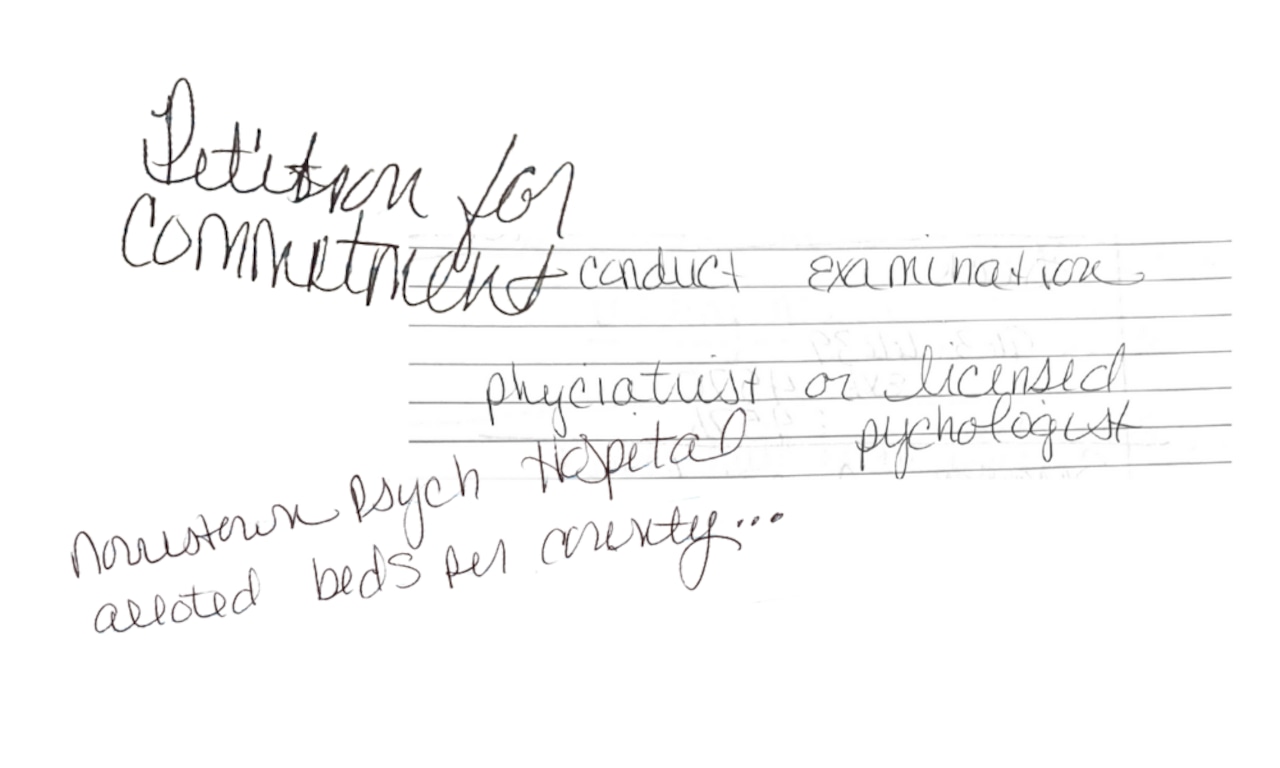 Petition for
Commitment
conduct examination
phyciatrist or licensed
pychologist
Norristown Psych Hospital
alloted beds per county...